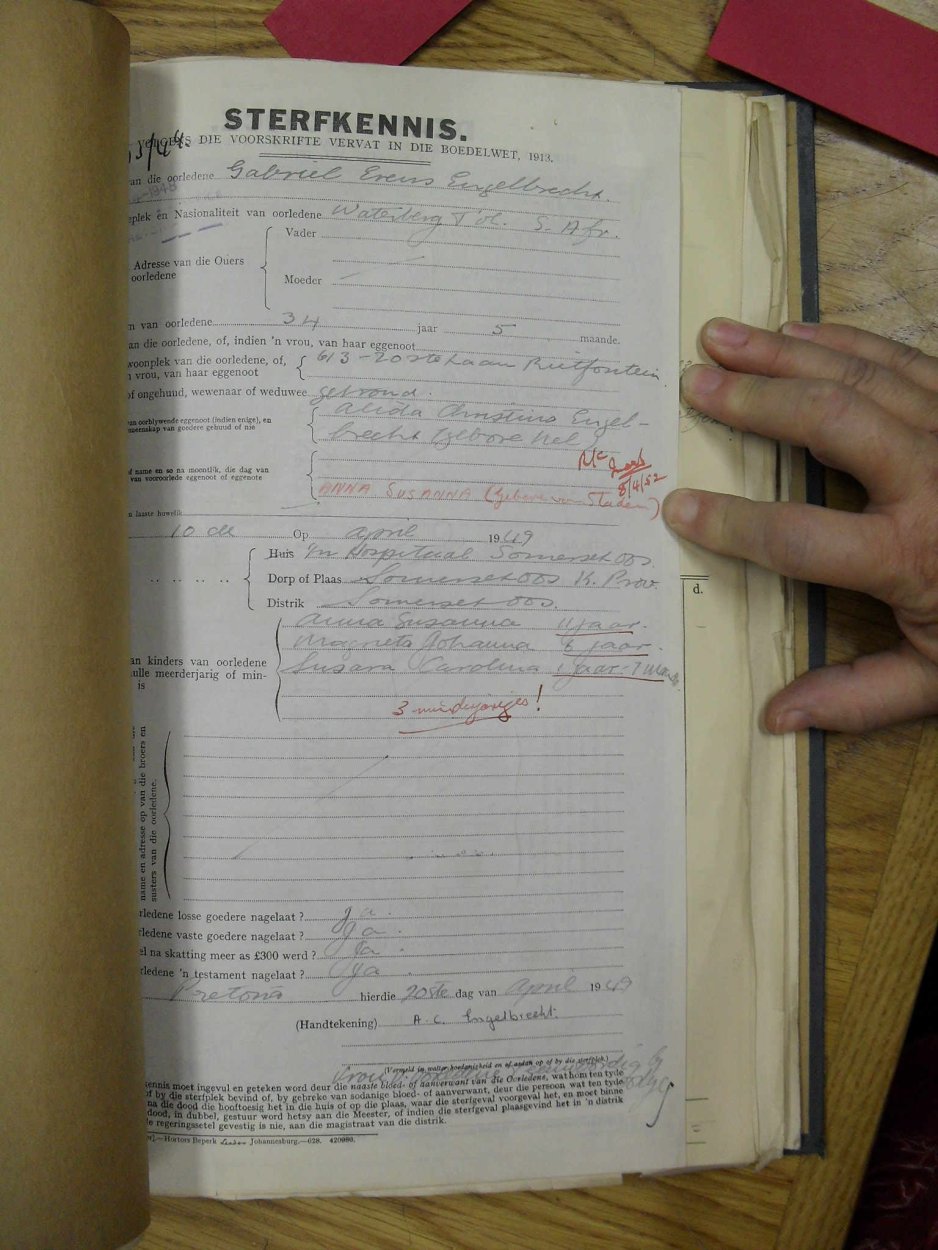 STERFKENNIS.
VOLGENS DIE VOORSKRIFTE VERVAT IN DIE BOEDELWET, 1913.
an die oorledene Gabriel Erens Engelbrecht.
eplek en Nasionaliteit van oorledene Waterberg Tvl. S. Afr.
Vader
Adresse van die Ouers
oorledene
Moeder
n van oorledene 34 jaar 5 maande.
an die oorledene, of, indien 'n vrou, van haar eggenoot
woonplek van die oorledene, of, 613 - 20ste Laan Rietfontein.
n vrou, van haar eggenoot
of ongehud, wewenaar of weduwee getroud.
van oorblywende eggenoot (indien enige), en Alida Christina Engel-
meenskap van goedere gehuud of nie brecht (gebore Nel)
f name en so na moontlik, die dag van
van vooroorlede eggenoot of eggenote
8/4/52
ANNA SUSANNA (gebore van Staden)
n laaste huwelik
10 de Op April 1949
Huis In Hospitaal Somerset Oos.
Dorp of Plaas Somerset Oos K. Prov.
Distrik Somerset Oos.
Anna Susanna 11 jaar.
Magrieta Johanna 6 jaar.
an kinders van oorledene Susara Carolina 1 jaar 7 mnde
ulle meerderjarig of min-
is
3 minderjariges!
name en adresse op van die broers en
susters van die oorledene.
rledene losse goedere nagelaat? Ja.
rledene vaste goedere nagelaat? Ja.
el na skatting meer as £300 werd? Ja.
rledene 'n testament nagelaat? Ja.
Pretoria hierdie 20ste dag van April 1949
(Handtekening) A. C. Engelbrecht.
(Vermeld in watter hoedanigheid en of anden op of by die sterfplek.)
kennis moet ingevul en geteken word deur die naaste bloed- of aanverwant van die Oorledene, wat hom ten tyde
of by die sterfplek bevind of, by gebreke van sodanige bloed- of aanverwant, deur die persoon wat ten tyde
na die dood die hooftoesig het in die huis of op die plaas, waar die sterfgeval voorgeval het, en moet binne
dood, in dubbel, gestuur word hetsy aan die Meester, of indien die sterfgeval plaasgevind het in 'n distrik
e regeringssetel gevestig is nie, aan die magistraat van die distrik.
—Hortors Beperk Johannesburg.—628. 420980.
d.